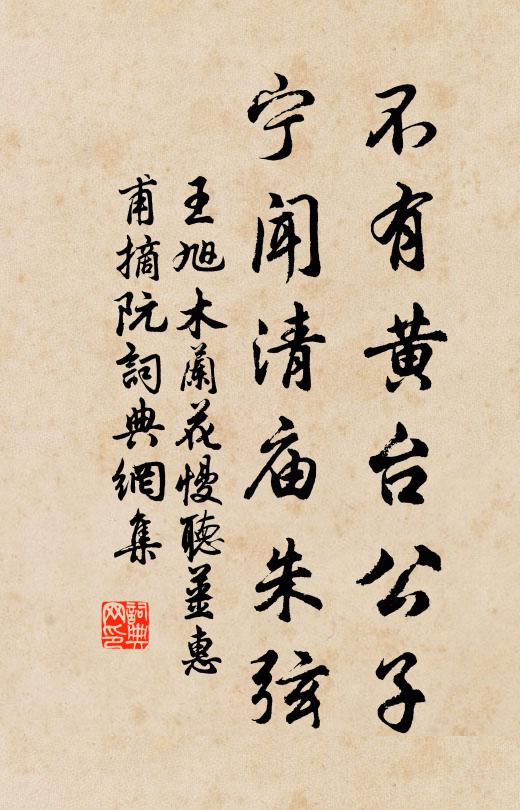 不有黄台公子
宁闻清庙朱弦
王旭木蘭花慢聽姜惠
甫摘阮詞典網集
詞典网印